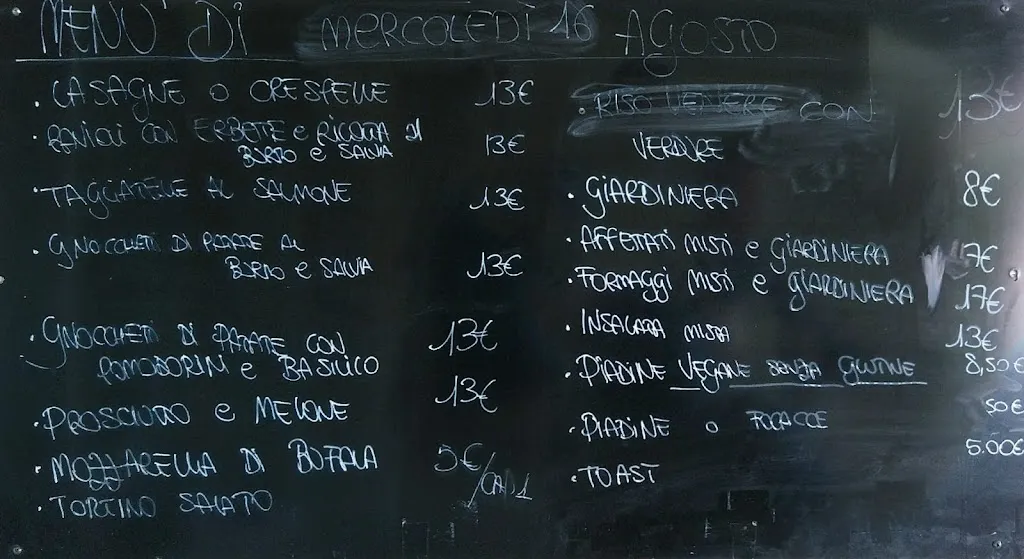 MENÙ DI MERCOLEDÌ 16 AGOSTO
· LASAGNE O CRESPELLE 13€
· RAVIOLI CON ERBETTE e RICOTTA al
BURRO e SALVIA 13€
· TAGLIATELLE AL SALMONE 13€
· GNOCCHETTI DI PATATE AL
BURRO e SALVIA 13€
· GNOCCHETTI DI PATATE CON 13€
POMODORINI e BASILICO
13€
· PROSCIUTTO e MELONE
· MOZZARELLA DI BUFALA 5€/CAD1
· TORTINO SALATO
· RISO VENERE CON 13€
VERDURE
· GIARDINIERA 8€
· AFFETTATI MISTI e GIARDINIERA 7€
· FORMAGGI MISTI e GIARDINIERA 17€
· INSALATA MISTA 13€
· PIADINE VEGANE SENZA GLUTINE 8,50€
50€
· PIADINE O FOCACCE
5.00€
· TOAST